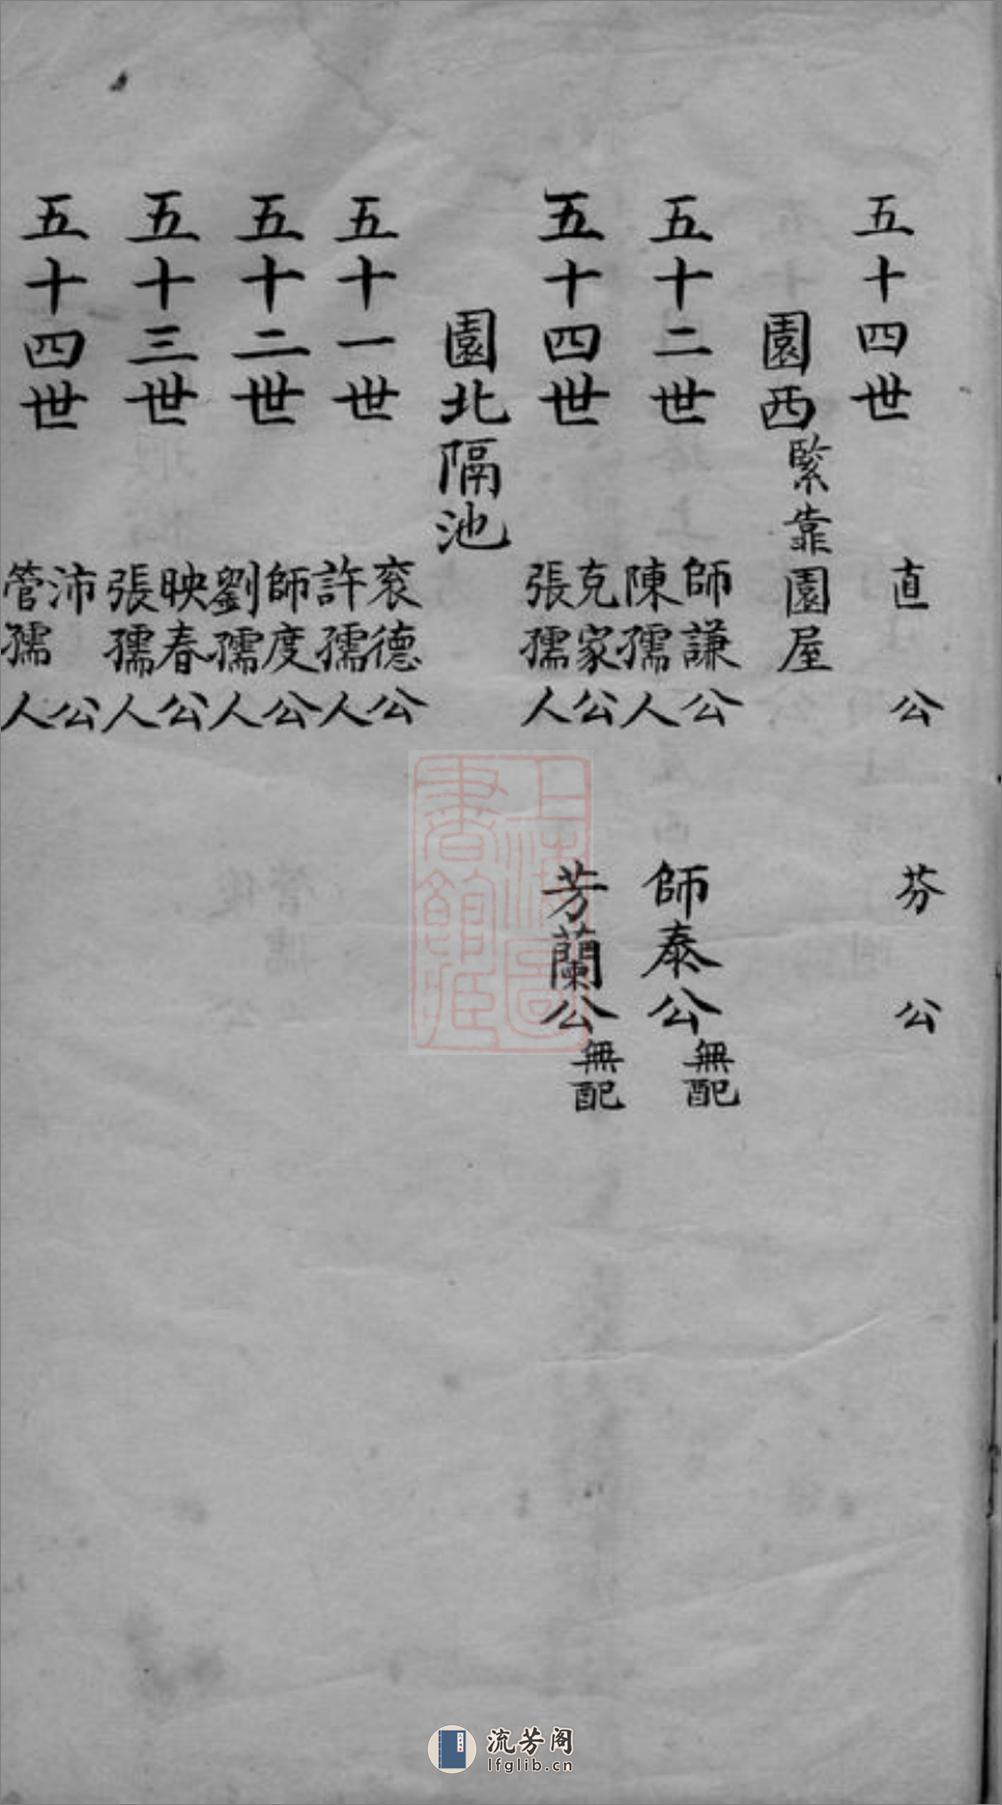 五十四世 直公 芬公
園西緊靠園屋
五十二世 師謙公 陳孺人 師泰公無配
五十四世 克家公 張孺人 芳蘭公無配
園北隔池
五十一世 衮德公 許孺人
五十二世 師度公 劉孺人
五十三世 映春公 張孺人
五十四世 沛公 管孺人
上海圖書館藏
流芳阁
lfglib.cn